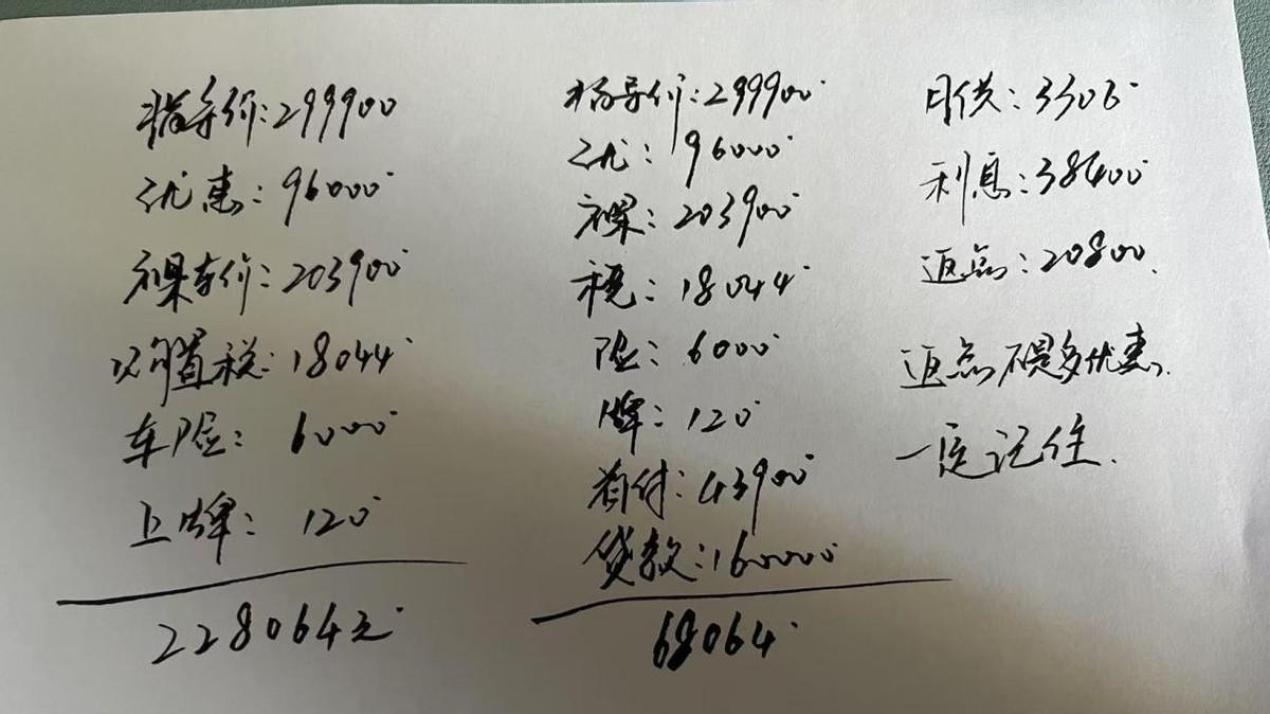 指导价:299900
优惠:96000
裸车价:203900
购置税:18044
车险:6000
上牌:120
228064元
指导价:299900
优:96000
裸:203900
税:18044
险:6000
牌:120
首付:43900
贷款:160000
68064
月供:3306
利息:38400
返点:20800.
返点不是多优惠.
一定记住.